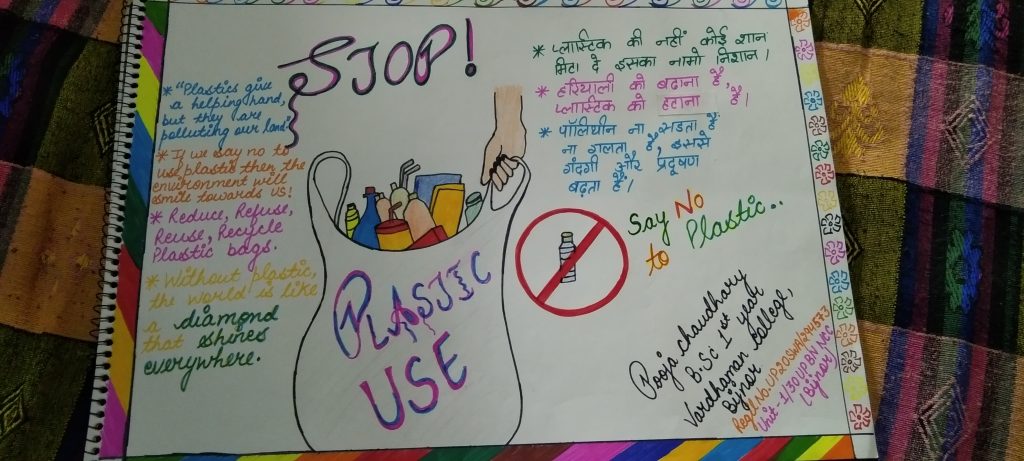 STOP!
* "Plastics give
a helping hand,
but they are
polluting our land"
* If we say no to
use plastic then the
environment will
smile towards us!
* Reduce, Refuse,
Reuse, Recycle
Plastic bags.
* Without plastic,
the world is like
a diamond
that shines
everywhere.
PLASTIC
USE
* प्लास्टिक की नहीं कोई शान
मिटा दे इसका नामो निशान।
* हरियाली को बढाना है,
प्लास्टिक को हटाना है।
* पॉलिथीन ना सडता है
ना गलता है, इससे
गंदगी और प्रदूषण
बढ़ता है।
Say No
to Plastic..
Pooja chaudhary
B.Sc 1st year
Vardhaman College,
Bijnor
Regd No. UP20SWA/
Unit-1/30UPBN NCC
(Bijnor)